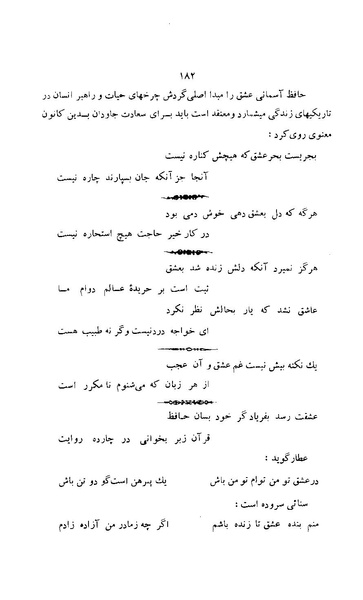 ۱۸۲
حافظ آسمانی عشق را مبدا اصلی گردش چرخهای حیات و راهبر انسان در
تاریکیهای زندگی میشمارد و معتقد است باید برای سعادت جاودان بدین کانون
معنوی روی کرد :
بحریست بحر عشق که هیچش کناره نیست
آنجا جز آنکه جان بسپارند چاره نیست
هر گه که دل بعشق دهی خوش دمی بود
در کار خیر حاجت هیچ استخاره نیست
هرگز نمیرد آنکه دلش زنده شد بعشق
ثبت است بر جریدهٔ عالم دوام ما
عاشق نشد که یار بحالش نظر نکرد
ای خواجه درد نیست و گر نه طبیب هست
یك نکته بیش نیست غم عشق و آن عجب
از هر زبان که می‌شنوم نا مکرر است
عشقت رسد بفریاد گر خود بسان حافظ
قرآن زبر بخوانی در چارده روایت
عطار گوید :
در عشق تو من توام تو من باش یك پیرهن است گو دو تن باش
سنائی سروده است :
منم بنده عشق تا زنده باشم اگر چه ز مادر من آزاده زادم